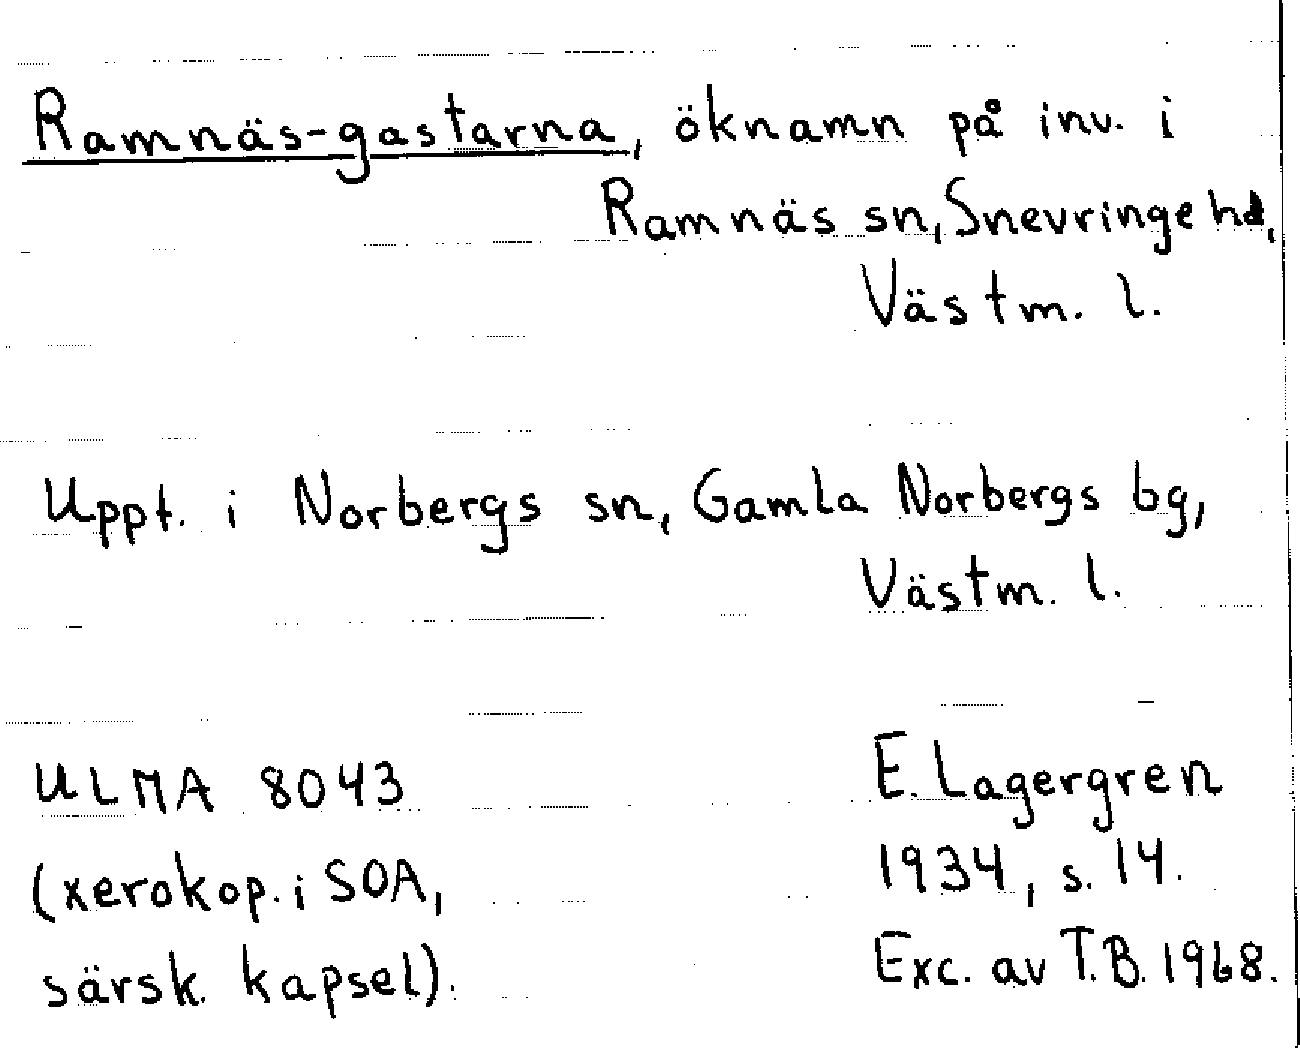 Ramnäs-gastarna, öknamn på inv. i
Ramnäs sn, Snevringe hd,
Västm. l.
Uppt. i Norbergs sn, Gamla Norbergs bg,
Västm. l.
ULMA 8043
(xerokop. i SOA,
särsk. kapsel).
E. Lagergren
1934, s. 14.
Exc. av T.B. 1968.